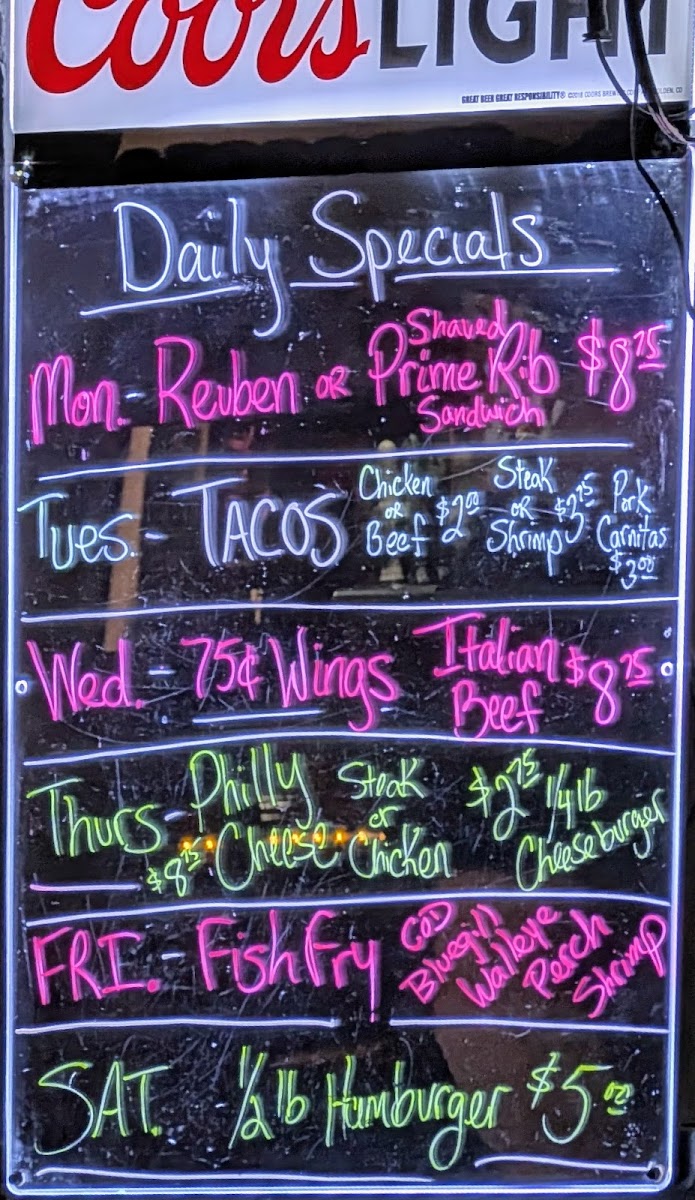 Coors LIGHT
GREAT BEER GREAT RESPONSIBILITY® ©2018 COORS BREWING CO., GOLDEN, CO
Daily Specials
Mon. Reuben OR Shaved Prime Rib Sandwich $8.75
Tues. - TACOS Chicken OR Beef $2.00 Steak OR Shrimp $3.75 Pork Carnitas $3.00
Wed. - 75¢ Wings Italian Beef $8.75
Thurs - Philly Cheese Steak or Chicken $8.75 $2.75 1/4 lb Cheeseburger
FRI. - Fish Fry COD Bluegill Walleye Perch Shrimp
SAT. 1/2 lb Hamburger $5.00